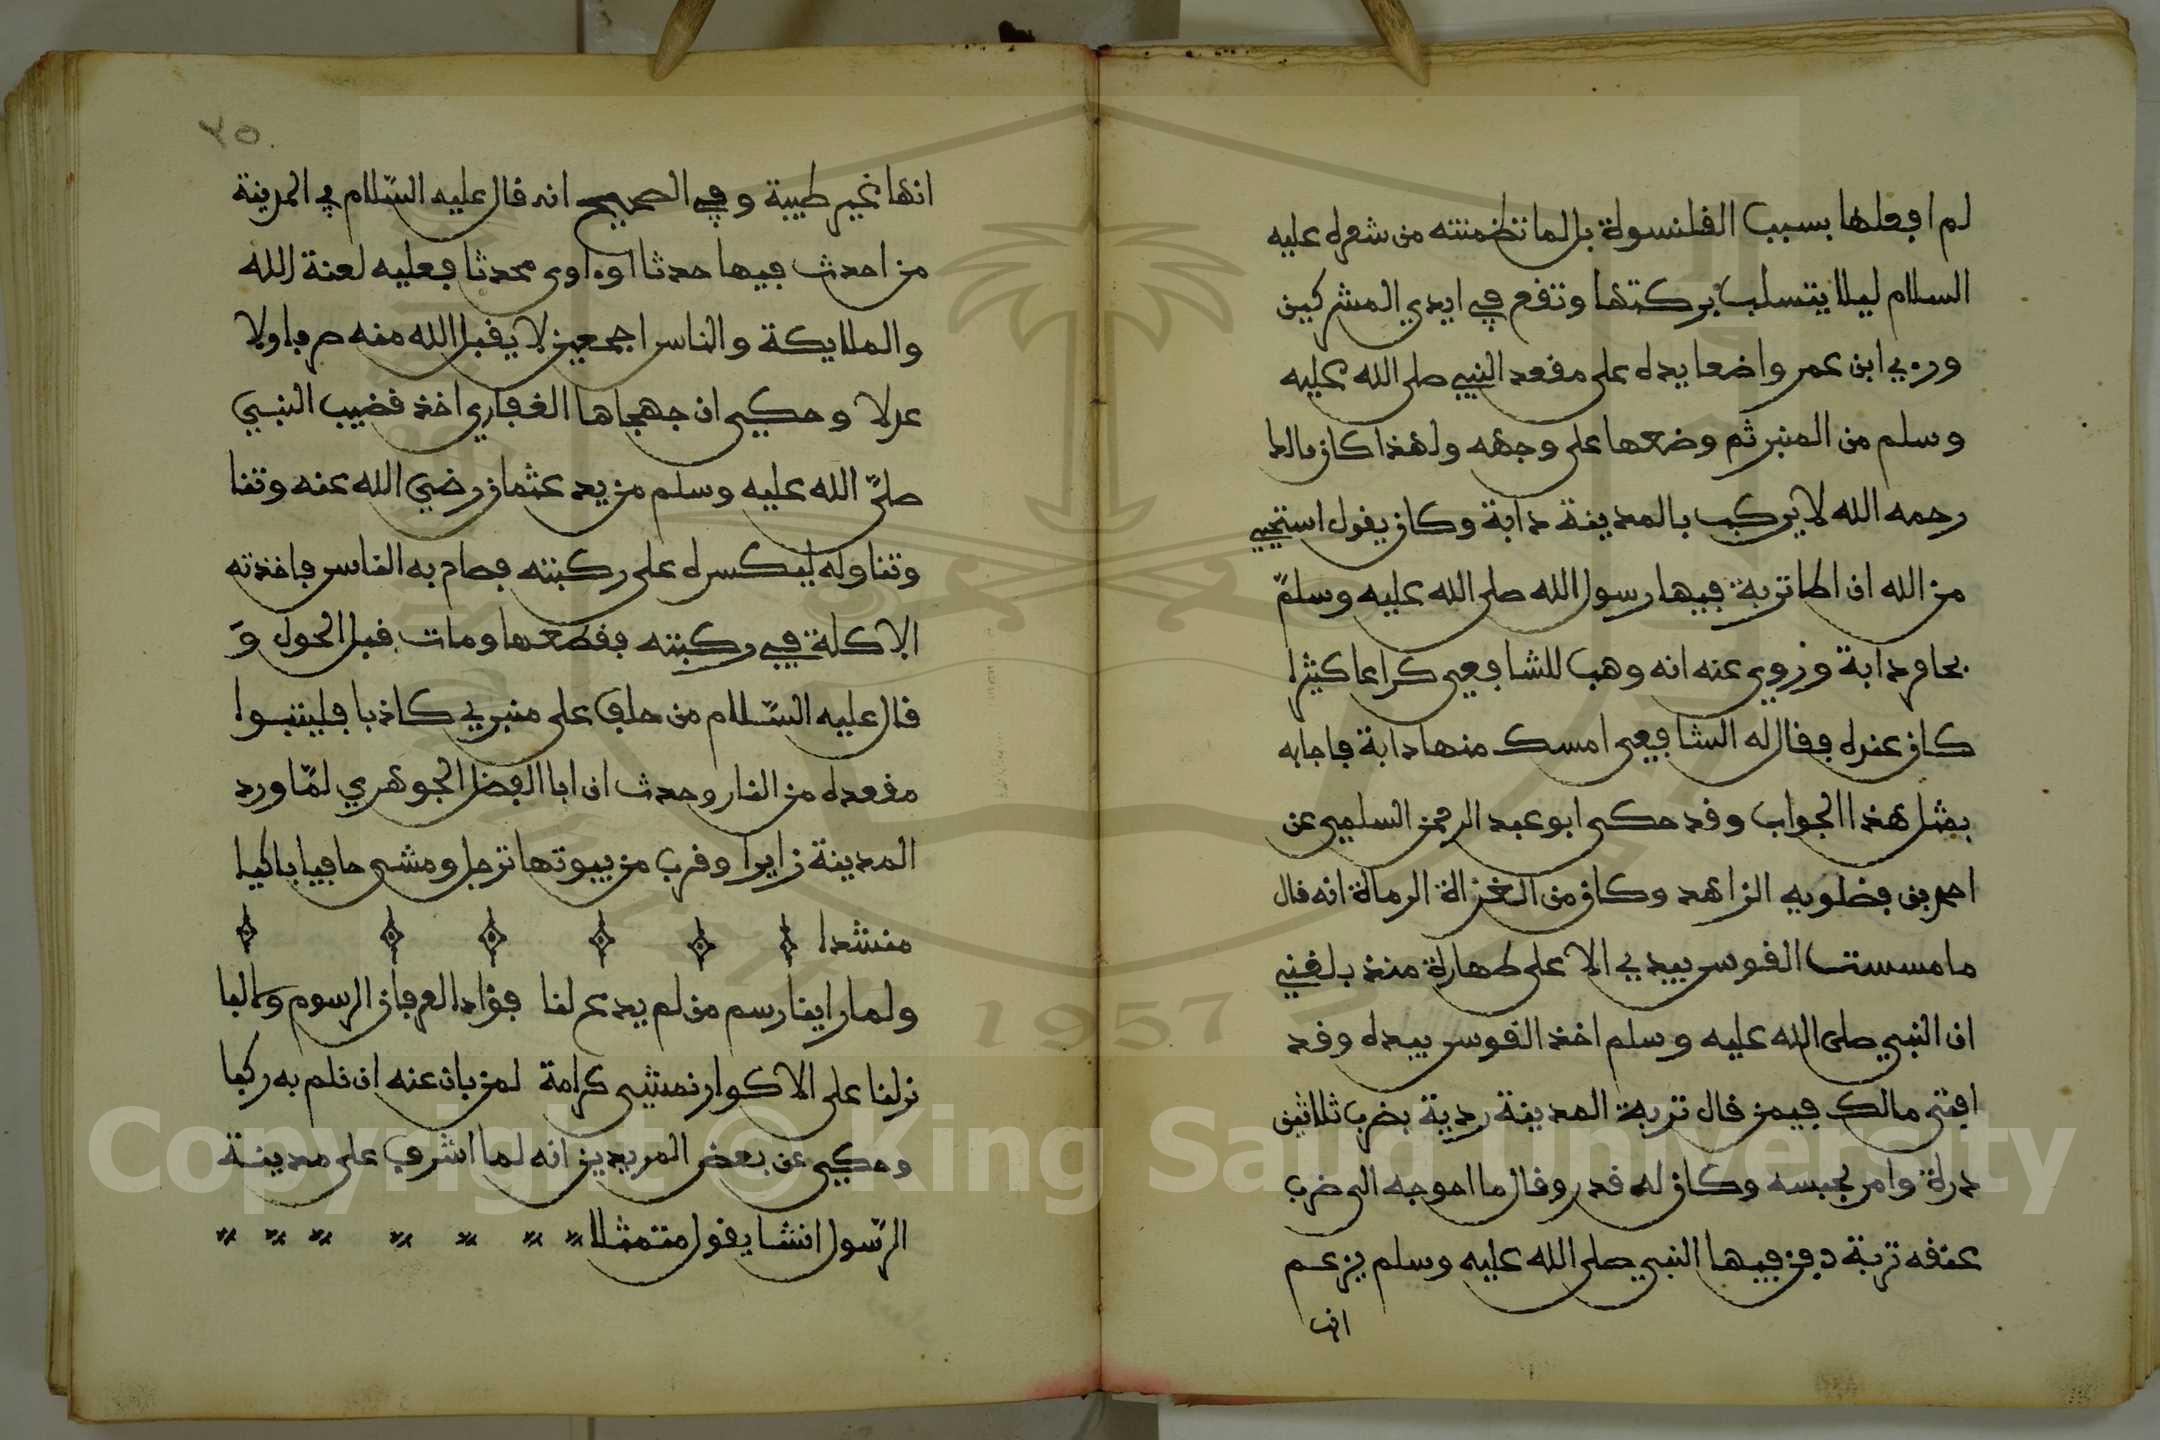 لم افعلها بسبب القلنسوة بل لما تظمنته من شعره عليه
السلام ليلا يتسلب بركتها وتقع في ايدي المشركين
وروي ابن عمر واضعا يده على مقعد النبي صلى الله عليه
وسلم من المنبر ثم وضعها على وجهه ولهذا كان مالك
رحمه الله لا يركب بالمدينة دابة وكان يقول استحيي
من الله ان اطا تربة فيها رسول الله صلى الله عليه وسلم
بحافر دابة وروي عنه انه وهب للشافعي كراعا كثيرا
كان عنده فقال له الشافعي امسك منها دابة فاجابه
بمثل هذا الجواب وقد حكى ابو عبد الرحمن السلمي عن
احمد بن فضلويه الزاهد وكان من الغزاة الرماة انه قال
ما مسست القوس بيدي الا على طهارة منذ بلغني
ان النبي صلى الله عليه وسلم اخذ القوس بيده وقد
افتى مالك فيمن قال تربة المدينة ردية بضرب ثلاثين
درة وامر بحبسه وكان له قدر وقال ما احوجه الى ضرب
عنقه تربة دفن فيها النبي صلى الله عليه وسلم يزعم
انها
٧٥
انها غير طيبة وفي الصحيح انه قال عليه السّلام في المدينة
من احدث فيها حدثا او ءاوى محدثا فعليه لعنة الله
والملايكة والناس اجمعين لا يقبل الله منه صرفا ولا
عدلا وحكي ان جهجاها الغفاري اخذ قضيب النبي
صلّى الله عليه وسلم من يد عثمان رضي الله عنه وتنا
وتناوله ليكسره على ركبته فصاح به الناس فاخذته
الاكلة في ركبته فقطعها ومات قبل الحول وَ
قال عليه السّلام من حلف على منبري كاذبا فليتبوا
مقعده من النار وحدث ان ابا الفضل الجوهري لمّا ورد
المدينة زايرا وقرب من بيوتها ترجل ومشى حافيا باكيا
منشدا
ولما راينا رسم من لم يدع لنا فؤادا لعرفان الرسوم ولا لبا
نزلنا على الاكوار نمشي كرامة لمن بان عنه ان نلم به ركبا
وحكي عن بعض المريدين انه لما اشرف على مدينة
الرّسول انشا يقول متمثلا
Copyright © King Saud University
1957